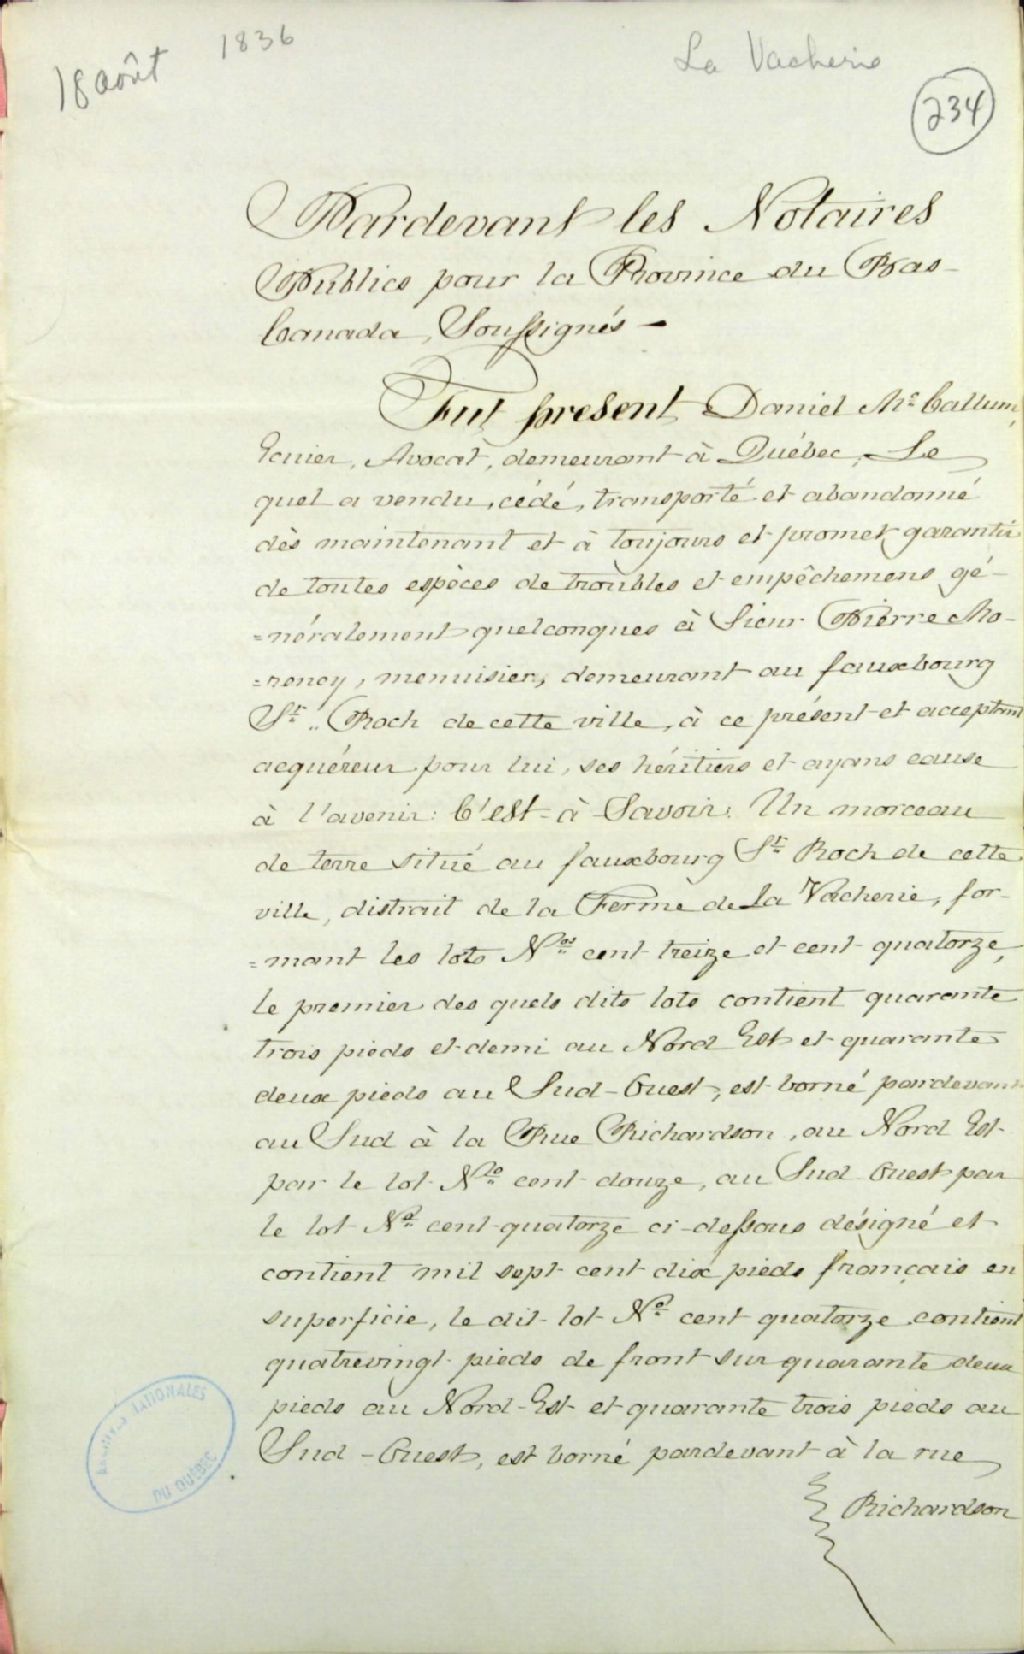 18 août 1836
La Vacherie
234
Pardevant les Notaires
Publics pour la Province du Bas-
Canada, Soussignés —
Fut present Daniel Mc Callum,
Ecuier, Avocat, demeurant à Québec, Le
quel a vendu, cédé, transporté et abandonné
dès maintenant et à toujours et promet garantir
de toutes espèces de troubles et empêchemens gé-
=néralement quelconques à Sieur Pierre Mo-
=rency, menuisier, demeurant au fauxbourg
St. Roch de cette ville, à ce présent et acceptant
acquéreur pour lui, ses héritiers et ayans cause
à l'avenir: C'est-à-Savoir: Un morceau
de terre situé au fauxbourg St. Roch de cette
ville, distrait de la Ferme de La Vacherie, for-
=mant les lots Nos cent treize et cent quatorze,
le premier des quels dits lots contient quarante
trois pieds et demi au Nord Est et quarante
deux pieds au Sud-Ouest, est borné pardevant
au Sud à la Rue Richardson, au Nord Est
par le lot No cent douze, au Sud Ouest par
le lot No cent quatorze ci-dessous désigné et
contient mil sept cent dix pieds français en
superficie, le dit lot No cent quatorze contient
quatrevingt pieds de front sur quarante deux
pieds au Nord-Est et quarante trois pieds au
Sud-Ouest, est borné pardevant à la rue
Richardson
ARCHIVES NATIONALES
DU QUÉBEC